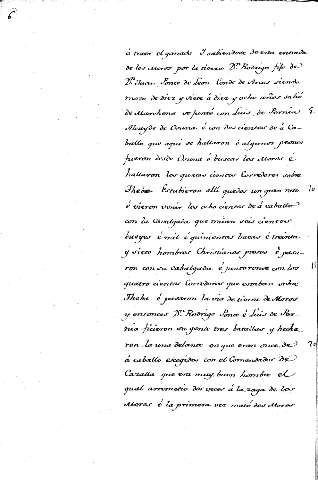 6
á traer el ganado I sabiendose de esta entrada
de los Moros por la tierra Dn. Rodrigo fijo de
Dn. Juan Ponce de Leon Conde de Arcos siendo
mozo de diez y siete á diez y ocho años salió
de Marchena se junto con Luis de Pernia 5.
Alcayde de Osuna é con dos cientas de á Ca-
ballo que aqui se hallaron é algunos peones
fueron desde Osuna á buscar los Moros é
hallaron los quatro cientos Corredores sobre
Theba. Estubieron allí quedos un gran rato 10
é vieron venir los ocho cientos de á caballo
con la Cavalgada que traien seis cientos
bueyes é mil é quinientas bacas é treinta
y siete hombres Christianos presos é pasa-
ron con su cabalgada é juntaronse con los 15
quatro cientos Corredores que estaban sobre
Theba é pasaron la via de tierra de Moros
y entonces Dn. Rodrigo Ponce é Luis de Per-
nia ficieron su gente tres batallas y hecha-
ron la una delante en que eran once de 20
á caballo escogidos con el Comendador de
Cazalla que era muy buen hombre el
qual arremetio dos veces á la zaga de los
Moros é la primera vez mató dos Moros